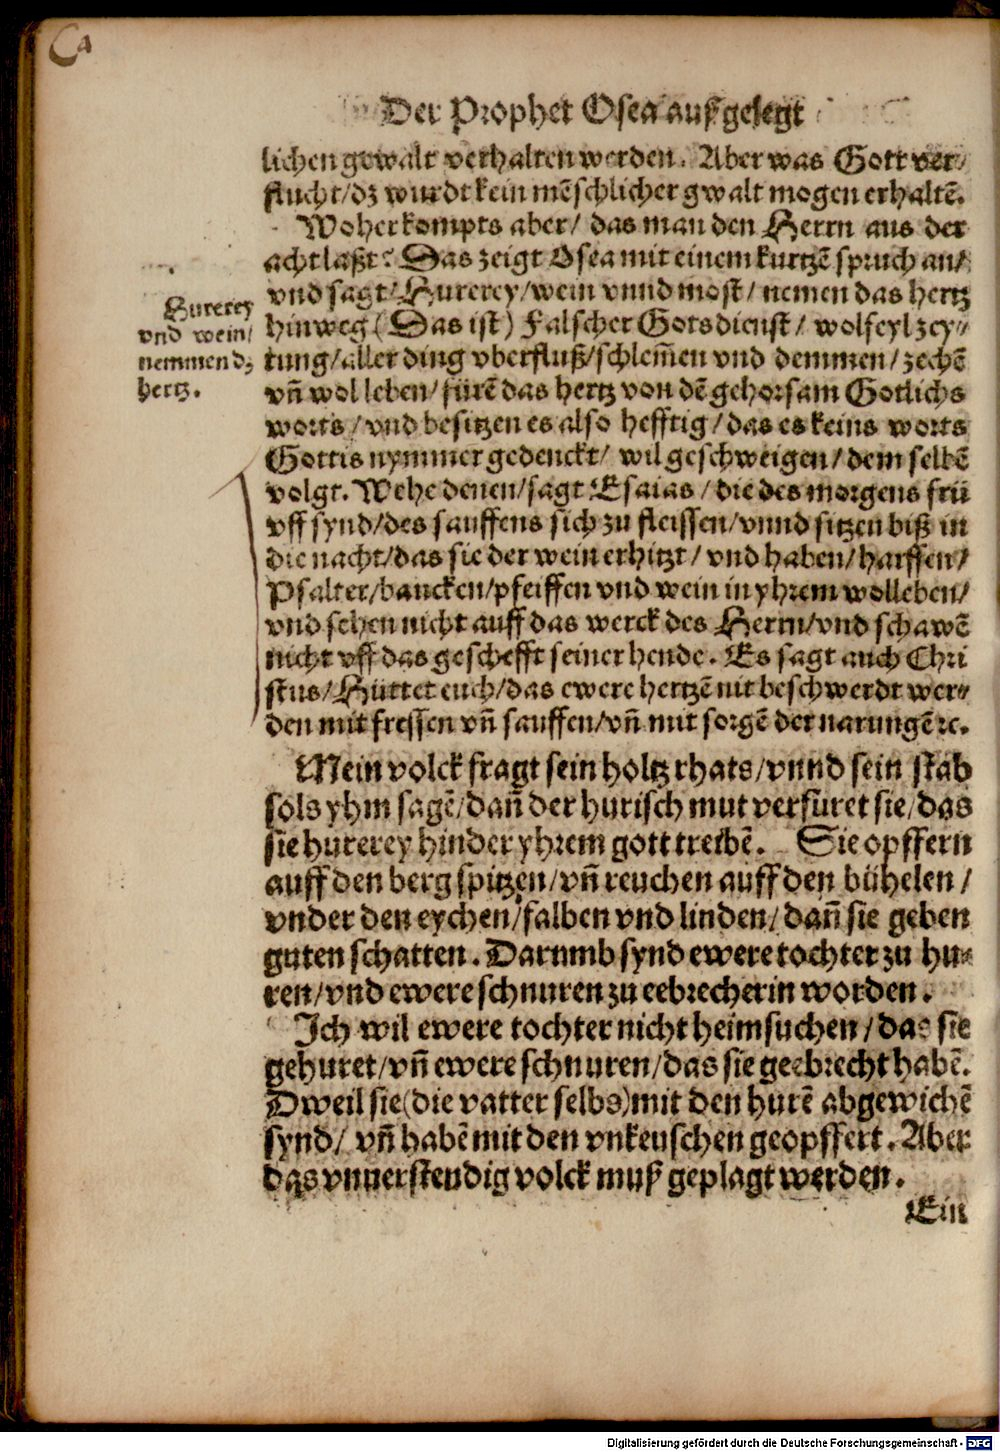 Ca
Der Prophet Osea außgelegt
lichen gewalt verhalten werden. Aber was Gott ver⸗
flucht/dz wurdt kein mēschlicher gwalt mogen erhaltē.
Woher kompts aber/ das man den Herrn aus der
acht laßt? Das zeigt Osea mit einem kurtzē spruch an/
vnd sagt/Hurerey/wein vnnd most/ nemen das hertz
hinweg (Das ist) Falscher Gotsdienst/ wolfeyl zey⸗
tung/aller ding vberfluß/schlem̄en vnd demmen/zechē
vn̄ wol leben/fürē das hertz von dē gehorsam Gotlichs
worts/vnd besitzen es also hefftig/das es keins worts
Gottis nymmer gedenckt/ wil geschweigen/dem selbē
volgt. Wehe denen/sagt Esaias/die des morgens frü
vff synd/des sauffens sich zu fleissen/vnnd sitzen biß in
die nacht/das sie der wein erhitzt/vnd haben/harffen/
Psalter/baucken/pfeiffen vnd wein in yhrem wolleben/
vnd sehen nicht auff das werck des Herrn/vnd schawē
nicht vff das geschefft seiner hende. Es sagt auch Chri
stus/Hüttet euch/das ewere hertzē nit beschwerdt wer⸗
den mit fressen vn̄ sauffen/vn̄ mit sorgē der narungē ꝛc.
Hurerey
vnd wein/
nemmen dz
hertz.
Mein volck fragt sein holtz rhats/vnnd sein stab
sols yhm sagē/dan̄ der hurisch mut verfüret sie/das
sie hurerey hinder yhrem gott treibē. Sie opffern
auff den berg spitzen/vn̄ reuchen auff den bühelen/
vnder den eychen/falben vnd linden/dan̄ sie geben
guten schatten. Darumb synd ewere tochter zu hu⸗
ren/vnd ewere schnuren zu eebrecherin worden.
Ich wil ewere tochter nicht heimsuchen/das sie
gehuret/vn̄ ewere schnuren/das sie geebrecht habē.
Dweil sie(die vatter selbs)mit den hurē abgewichē
synd/ vn̄ habē mit den vnkeuschen geopffert. Aber
das vnuerstendig volck muß geplagt werden.
Ein
Digitalisierung gefördert durch die Deutsche Forschungsgemeinschaft - DFG